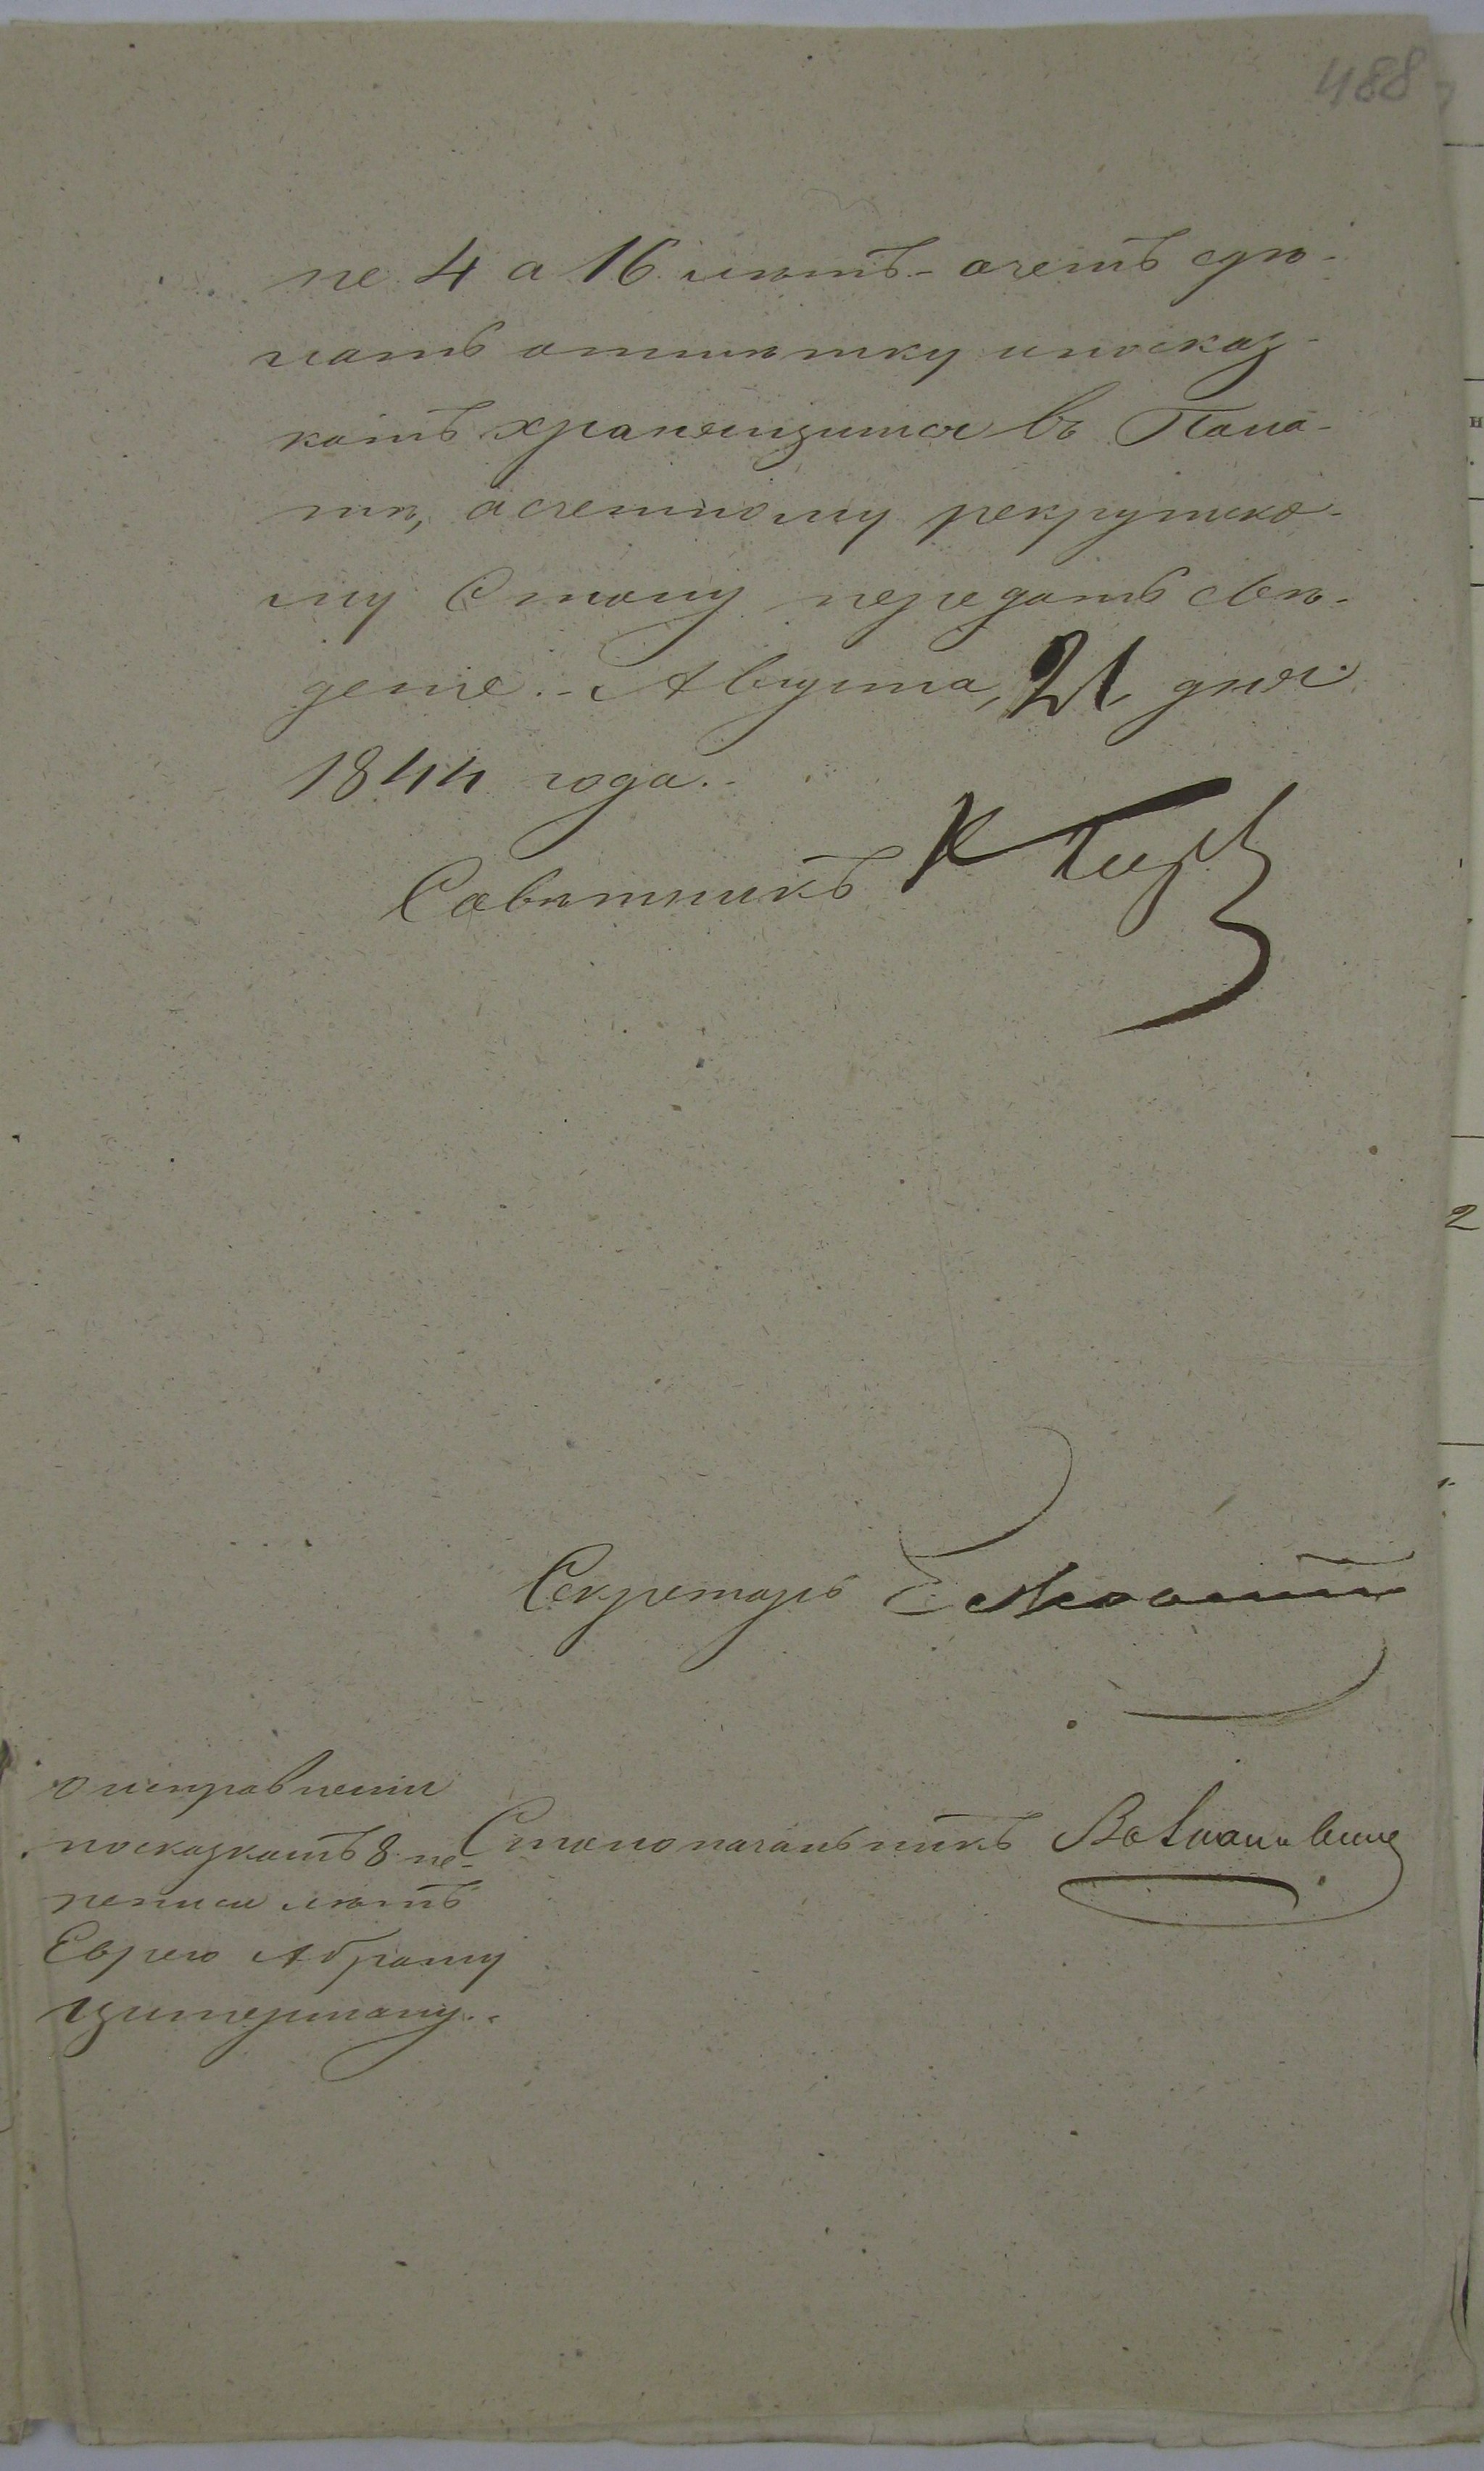 488
не 4 а 16 лѣтъ – очемъ сдѣ-
лать отмѣтку и по сказ-
камъ хранящимся въ Пала-
тѣ, а счетному рекрутско-
му Столу передать свѣ-
денiе. – Августа, 21 дня
1844 года. –
Совѣтникъ К
Секретарь
Столоначальникъ
о исправленiи
по сказкамъ 8 пе-
реписи лѣтъ
Еврею Абраму
Цитерману.